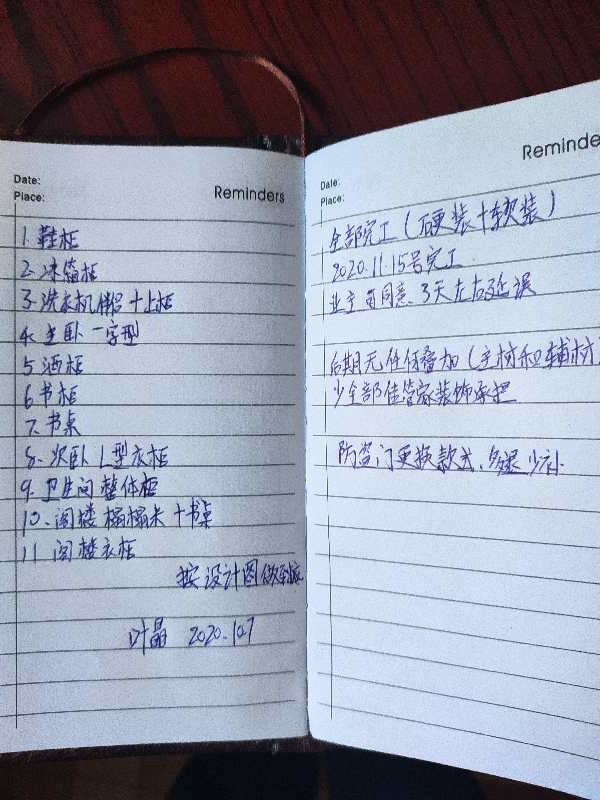 Date:
Place:
Reminders
1. 鞋柜
2. 冰箱柜
3. 洗衣机 + 上柜
4. 主卧 一字型
5 酒柜
6 书柜
7. 书桌
8. 次卧 L型衣柜
9. 卫生间 整体柜
10. 阁楼 榻榻米 + 书桌
11 阁楼衣柜
按设计图做到底
叶晶 2020.10.7
Date:
Place:
Reminde
全部完工 (硬装 + 软装)
2020.11.15号完工
业主 同意. 3天左右延误
后期无任何叠加 (主材和辅材)
全部佳管家装饰承担
防盗门更换款式. 多退少补